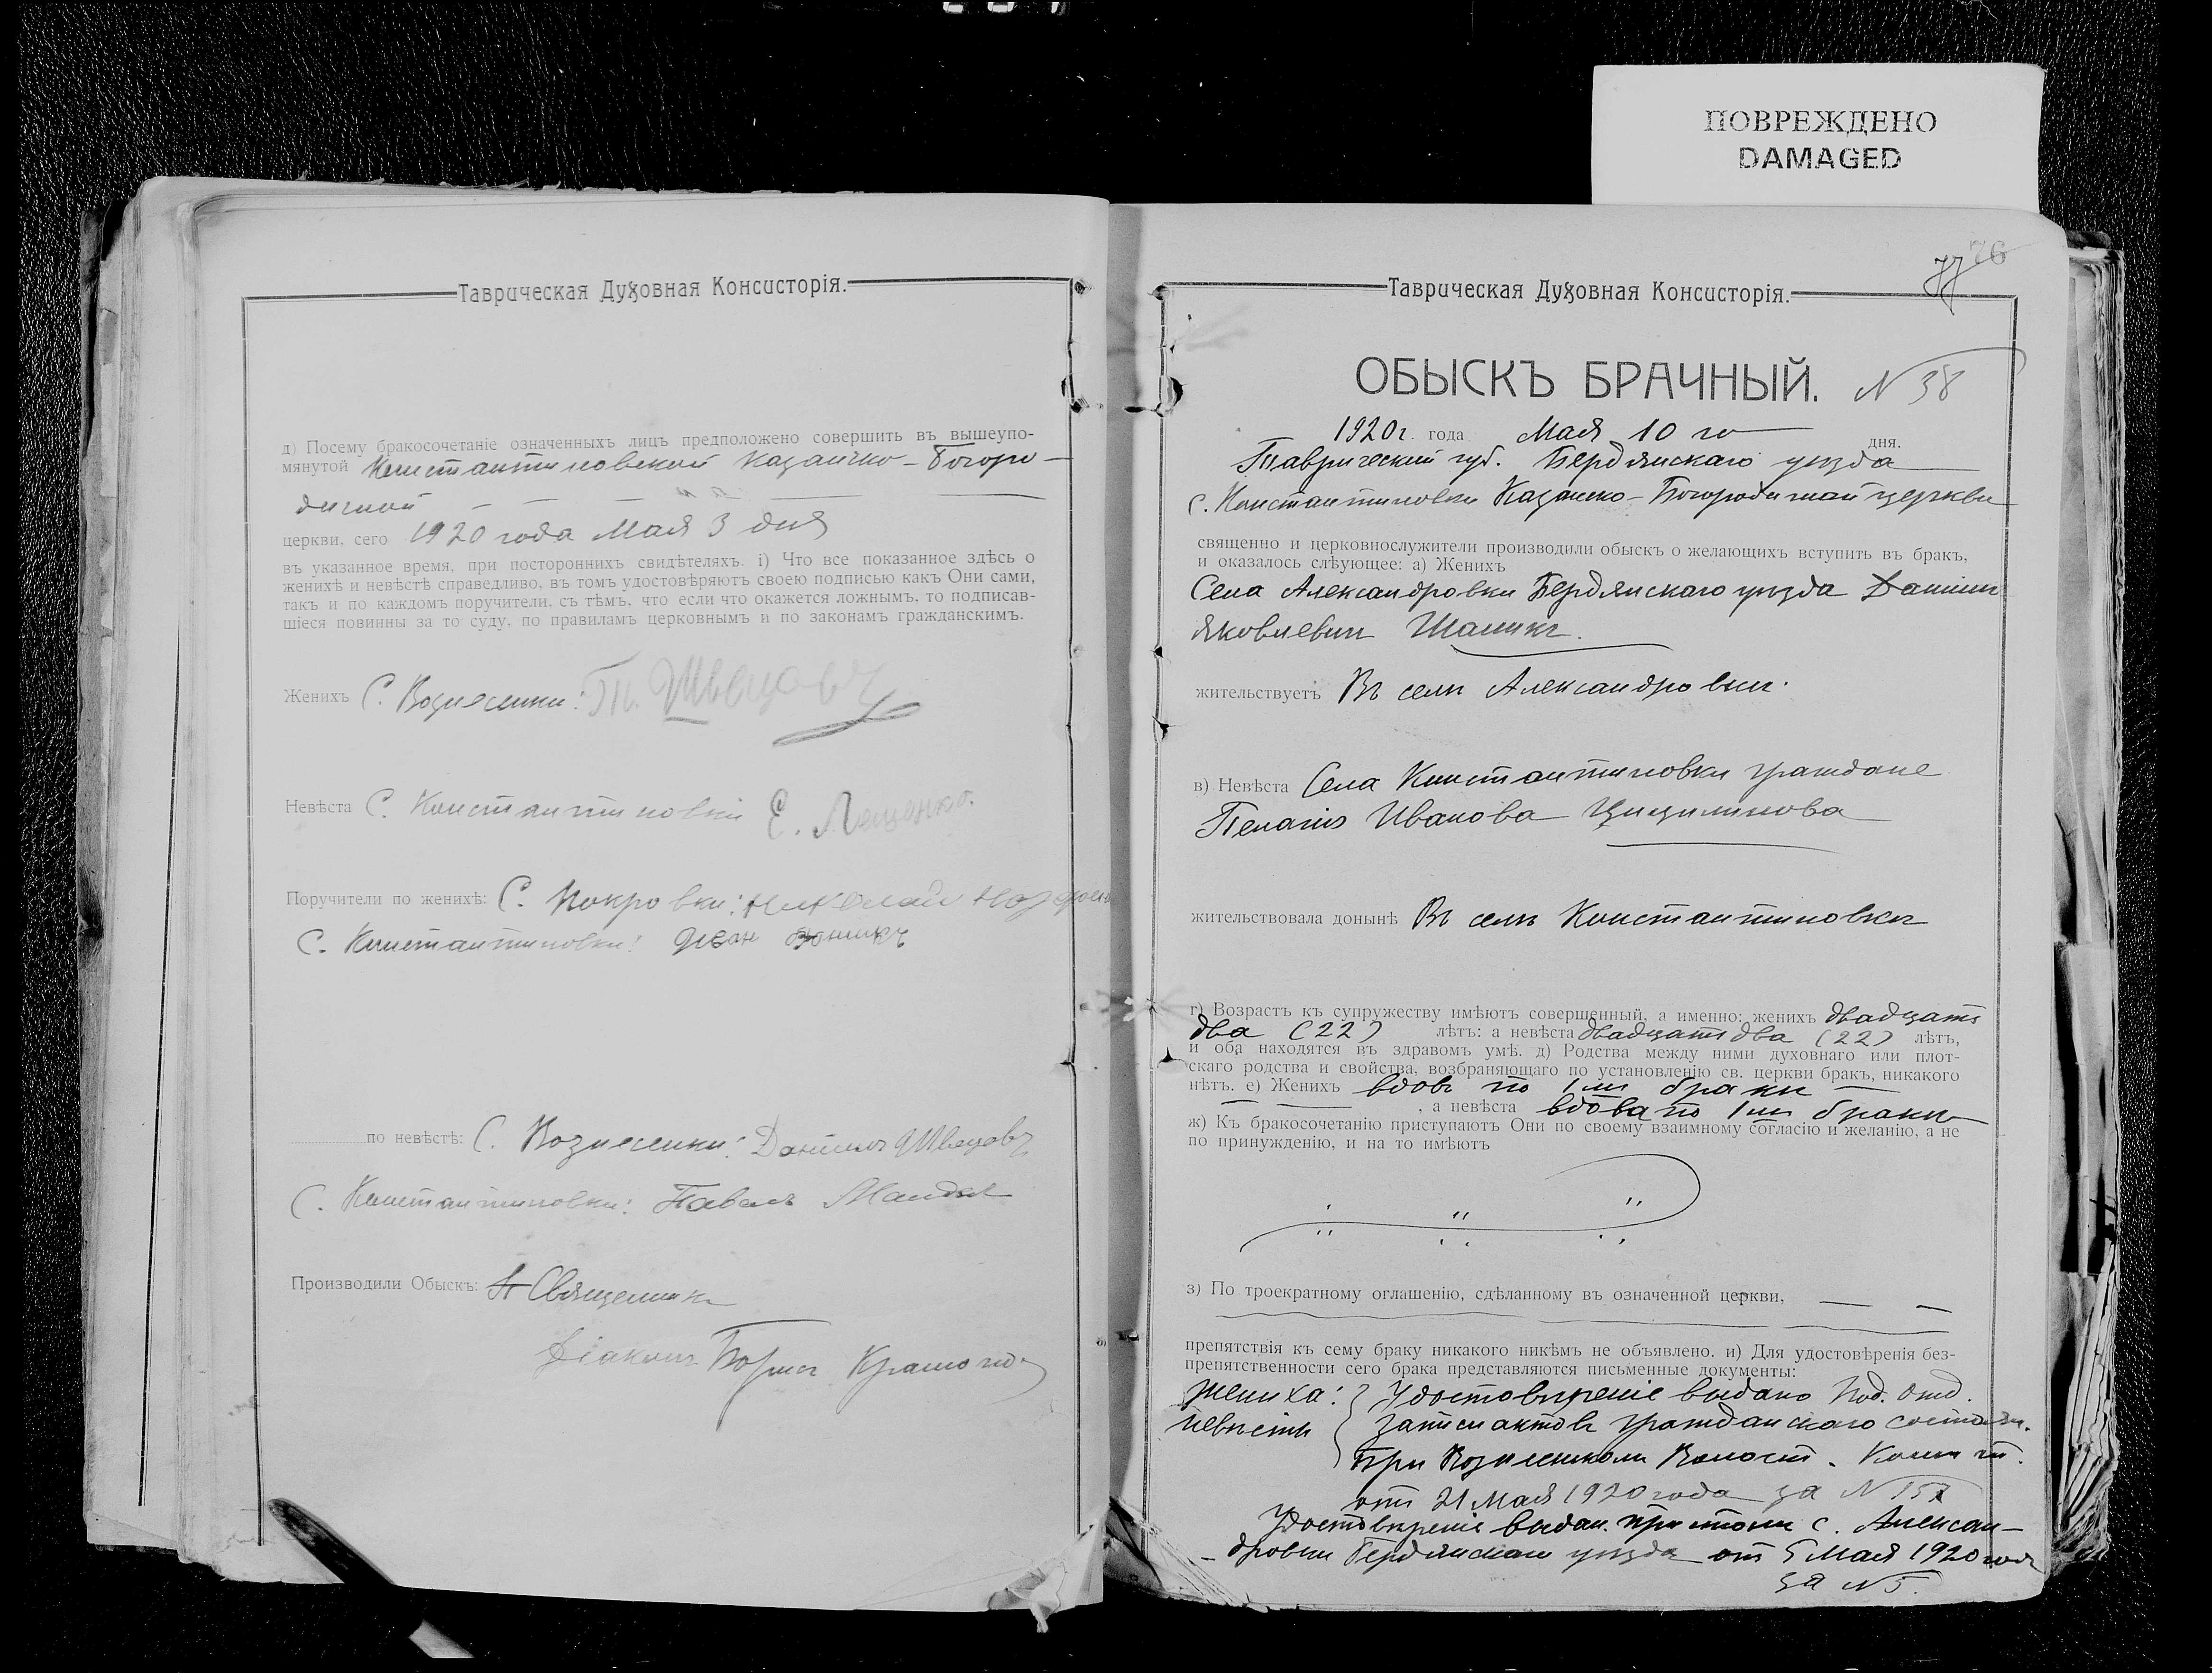 ПОВРЕЖДЕНО
DAMAGED
Таврическая Духовная Консисторія.
д) Посему бракосочетаніе означенныхъ лицъ предположено совершить въ вышеупо-
мянутой Константиновской Казанско-Богоро-
дичной
церкви, сего 1920 года Мая 3 дня
въ указанное время, при постороннихъ свидѣтеляхъ. i) Что все показанное здѣсь о
женихѣ и невѣстѣ справедливо, въ томъ удостовѣряютъ своею подписью какъ Они сами,
такъ и по каждомъ поручители, съ тѣмъ, что если что окажется ложнымъ, то подписав-
шіеся повинны за то суду, по правиламъ церковнымъ и по законамъ гражданскимъ.
Женихъ С. Вознесенки: Т. Швецовъ
Невѣста С. Константиновки Е. Лещенко.
Поручители по женихѣ: С. Покровки: Николай
С. Константиновки: Иван
по невѣстѣ: С. Вознесенки: Даниилъ Швецовъ
С. Константиновки: Павелъ
Производили Обыскъ: Священникъ
Діаконъ Борисъ
76
77
Таврическая Духовная Консисторія.
ОБЫСКЪ БРАЧНЫЙ. N 38
1920 г. года Мая 10 го дня.
Таврической губ. Бердянскаго уѣзда
с. Константиновки Казанско-Богородичной церкви
священно и церковнослужители производили обыскъ о желающихъ вступить въ бракъ,
и оказалось слѣующее: а) Женихъ
Села Александровки Бердянскаго уѣзда Даниил
Яковлевич
жительствуетъ Въ селѣ Александровкѣ.
в) Невѣста Села Константиновки граждане
Пелагія Иванова
жительствовала донынѣ Въ селѣ Константиновкѣ
г) Возрастъ къ супружеству имѣютъ совершенный, а именно: женихъ двадцать
два (22) лѣтъ: а невѣста двадцать два (22) лѣтъ,
и оба находятся въ здравомъ умѣ. д) Родства между ними духовнаго или плот-
скаго родства и свойства, возбраняющаго по установленію св. церкви бракъ, никакого
нѣтъ. е) Женихъ вдовъ по 1 мъ бракѣ
, а невѣста вдова по 1 мъ бракѣ
ж) Къ бракосочетанію приступаютъ Они по своему взаимному согласію и желанію, а не
по принужденію, и на то имѣютъ
з) По троекратному оглашенію, сдѣланному въ означенной церкви,
препятствія къ сему браку никакого никѣмъ не объявлено. и) Для удостовѣренія без-
препятственности сего брака представляются письменные документы:
Жениха: Удостовѣреніе выдано Под. Отд.
невѣсты записи актовъ гражданскаго состоян.
При Вознесенском Волост.
отъ 21 Мая 1920 года за N
Удостовѣреніе выдан. причтомъ с. Алексан-
-дровки Бердянскаго уѣзда отъ 5 Мая 1920 года
за N 5.